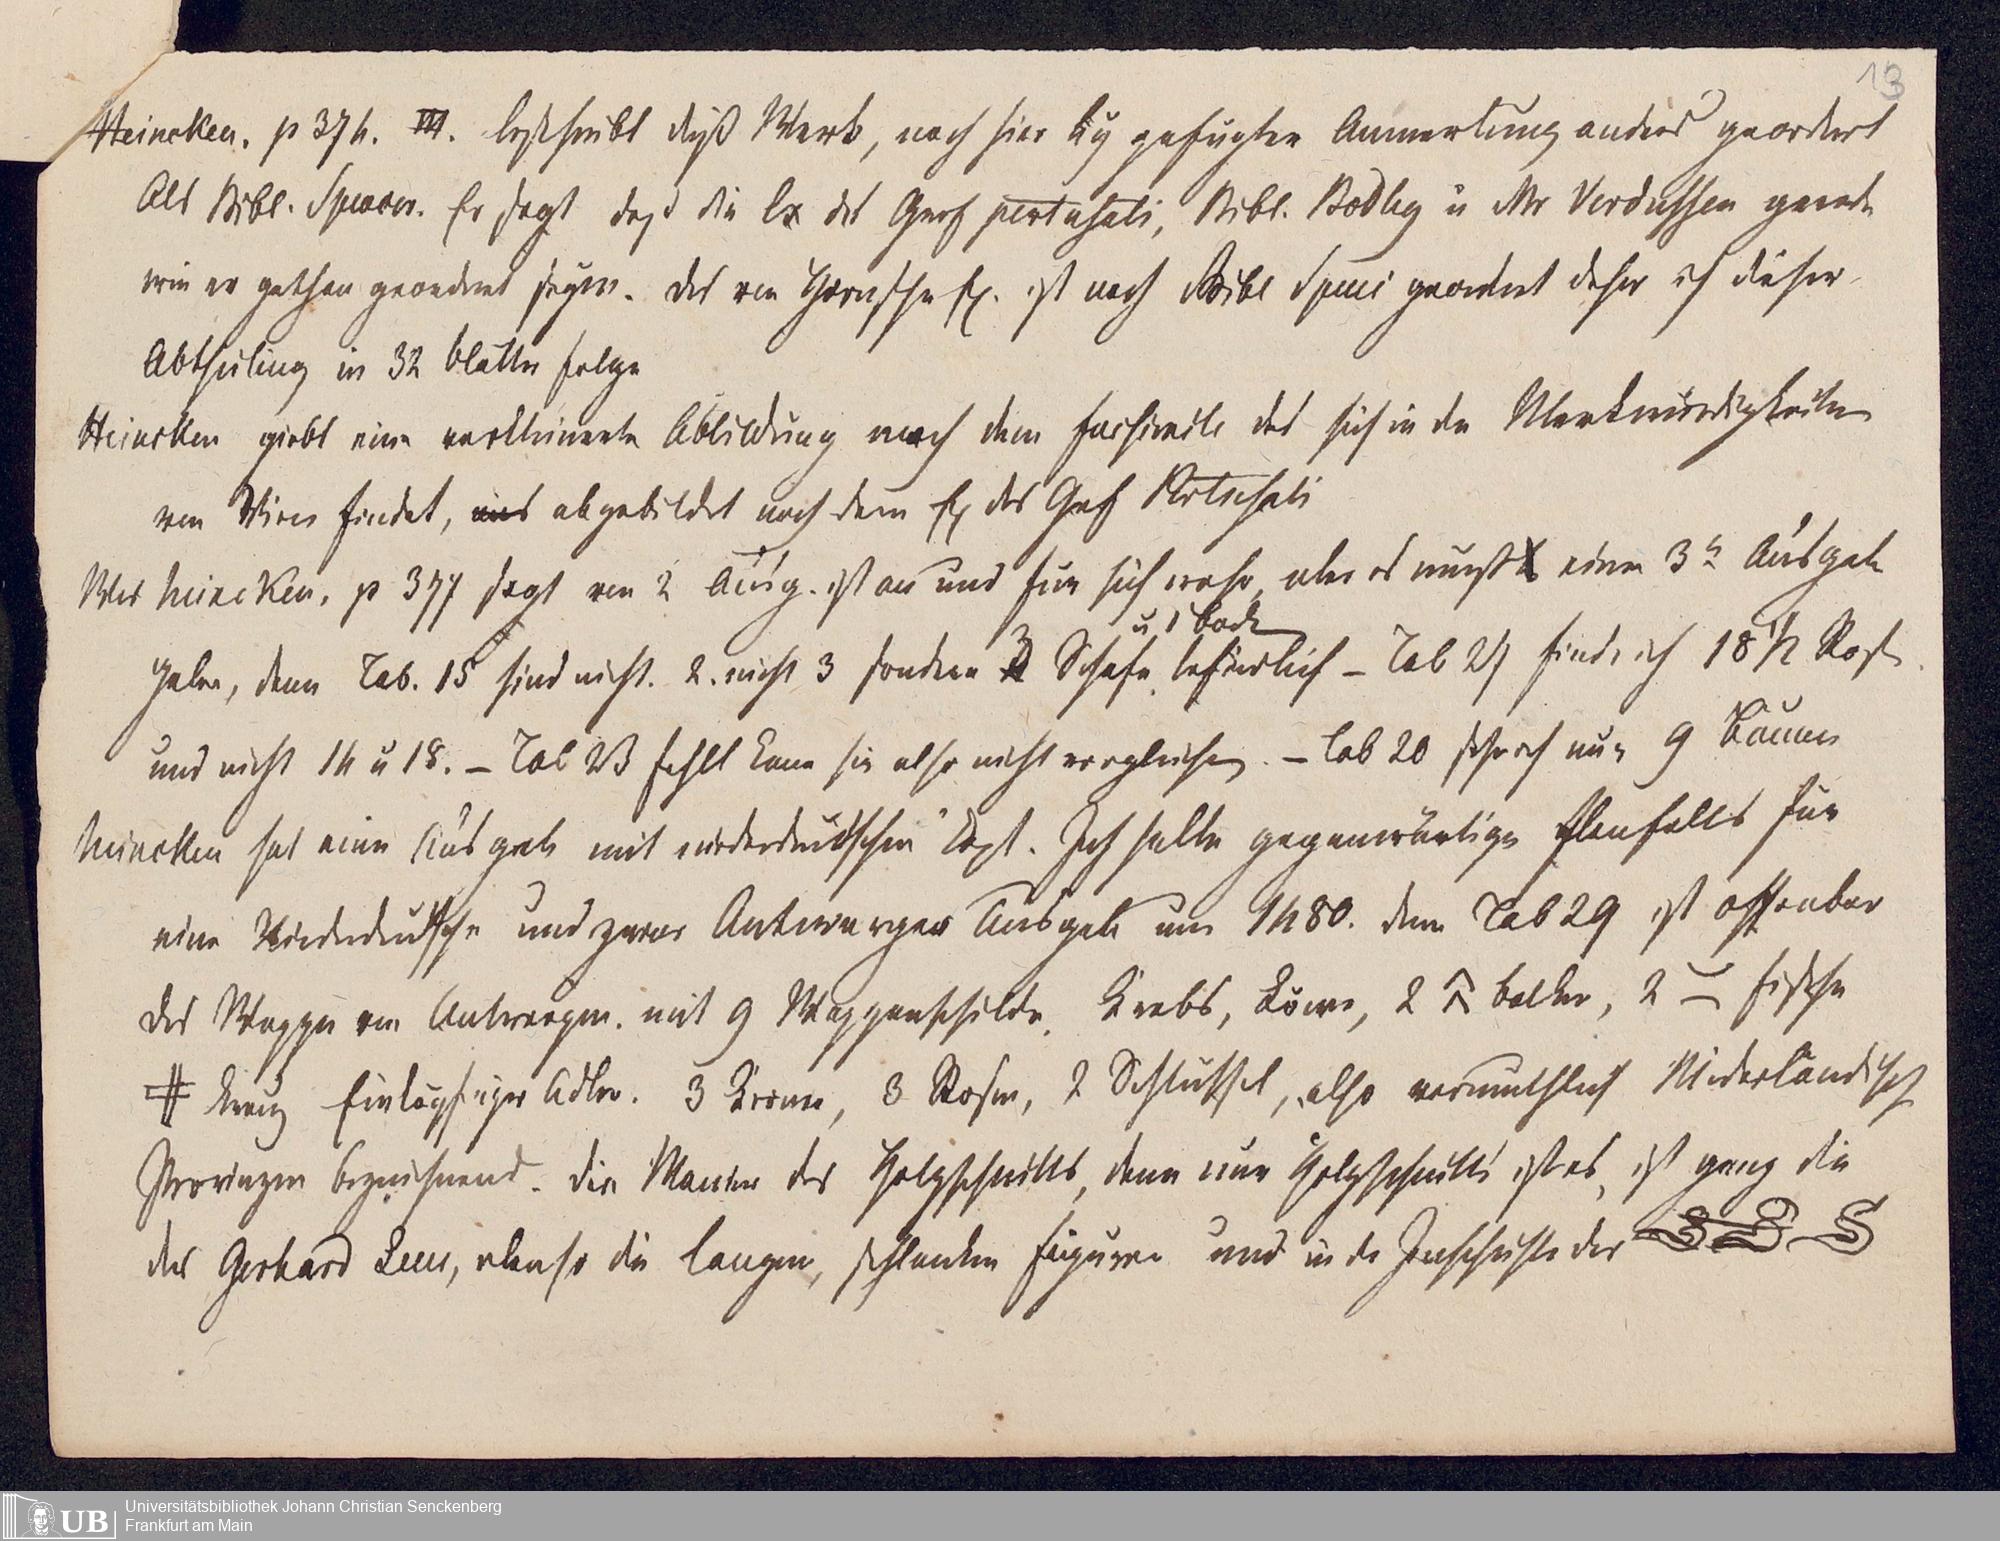 13
Heineken. p 374. III. beschreibt dieß Werk, nach hier bey gefugter Anmerkung anders geordnet
Als Bibl. Spencer. Er sagt daß die Ex des Graf pertusati, Bibl. Bodley u Mr Verdussen gerade
wie er gethan geordnet seyen. Das von Ex. ist nach Bibl Spenc geordnet daher ich dieser
Abtheilung in 32 blatter folge
Heineken giebt eine verkleinerte Abbildung nach dem facsimile das sich in den Merkwürdigkeiten
von Wien findet, abgebildet nach dem Ex des Graf Pertusati
Was heineken. p 377 sagt von 2 Ausg. ist an und fur sich wahr, aber es muß eine 3te Ausgabe
u 1 bock
geben, denn Tab. 15 sind nicht 2. nicht 3 sondern 3 Schafe befindlich – Tab 27 finde ich 18 1/2 Rose
und nicht 14 u 18. – Tab 23 fehlt kann sie also nicht vergleichen. – Tab 20 sehe ich nur 9 Bäume
heineken hat eine Ausgabe mit niederdeutschen Text. Ich halte gegenwärtige Ebenfalls fur
eine Niederdeutsche und zwar Antwerper Ausgabe um 1480. denn Tab 29 ist offenbar
das Wappen von Antwerpen. mit 9 Wappenschilde. Krebs, Löwe, 2 balken, 2 fische
# kreuz Einköpfiger Adler. 3 Krone, 3 Rosen, 2 Schlüssel, also vermuthlich Niederländisch
Provinzen bezeichnend. Die Manier des Holzschnitts, denn nur Holzschnitt ist es, ist ganz die
des Gerhard Leeu, ebenso die langen, schlanken Figuren und in der Inschrift der S
Universitätsbibliothek Johann Christian Senckenberg
Frankfurt am Main
UB